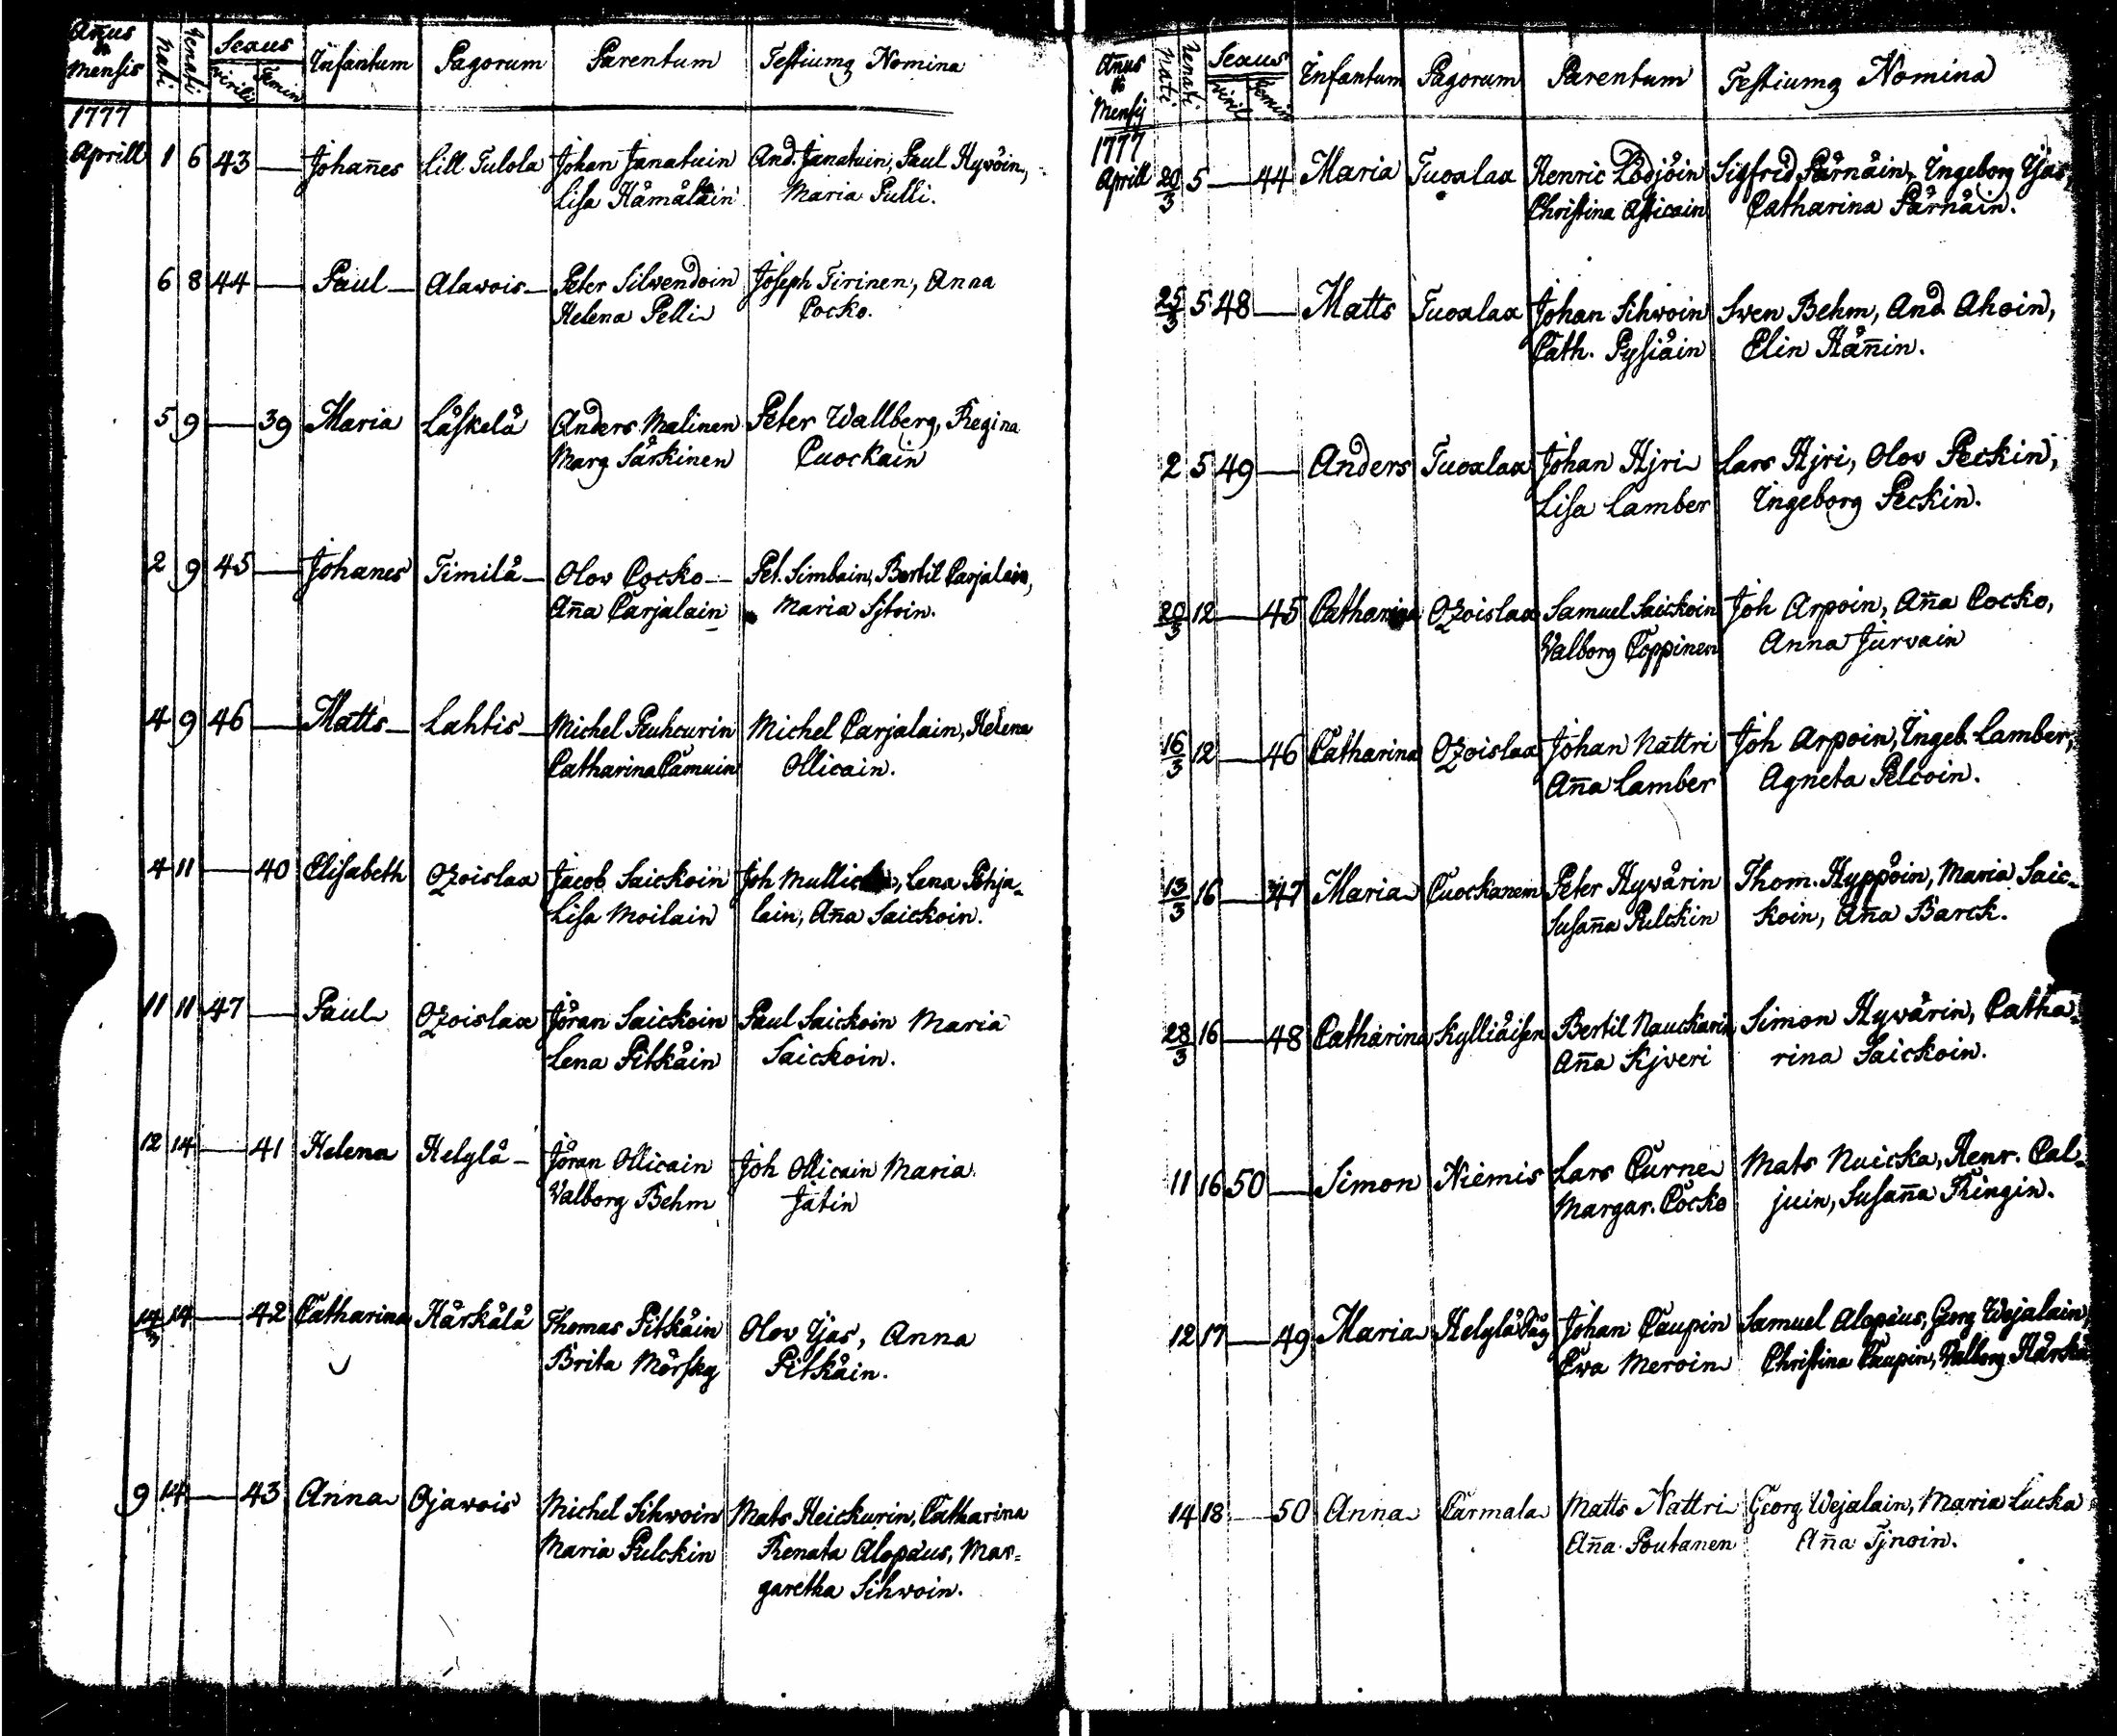 Anus & Mensis Nati Renati Sexus virilis Femin Infantum Pagorum Parentum Testiumq Nomina
1777
Aprill 1 6 43 — Johañes Lill Tulola Johan Janatuin And. Janatuin, Paul Hywöin,
Lisa Hämäläin Maria Pulli.
6 8 44 — Paul — Alawois — Peter Silwendoin Joseph Tirinen, Anna
Helena Pelli Cocko.
5 9 — 39 Maria Läskelä Anders Malinen Peter Wallberg, Regina
Marg Särkinen Cuockain
2 9 45 — Johanes Timilä — Olov Cocko — Pet. Simbain, Bertil Carjalain,
Aña Carjalain Maria Sjtoin.
4 9 46 — Matts — Lahtis — Michel Puhcurin Michel Carjalain, Helena
Catharina Camuin Ollicain.
4 11 — 40 Elisabeth Ozoislax Jacob Saickoin Joh Lena Pohja-
Lisa Moilain lain, Aña Saickoin.
11 11 47 — Paul Ozoislax Jöran Saickoin Paul Saickoin Maria
Lena Pitkäin Saickoin.
12 14 — 41 Helena Helylä — Jöran Ollicain Joh Ollicain Maria
Valborg Behm Jätin
14/3 14 — 42 Catharina Härkälä Thomas Pitkäin Olov Ijas, Anna
Brita Mörsky Pitkäin.
9 14 — 43 Anna Ojawois Michel Sihwoin Mats Heickurin, Catharina
Maria Pulckin Renata Alopæus, Mar=
garetha Sihwoin.
Anus & Mensij Nati Renati Sexus viril Femin Infantum Pagorum Parentum Testiumq Nomina
1777
Aprill 20/3 5 — 44 Maria Tuoxlax Henric Lodjöin Sigfred Pärnäin, Ingeborg Ijäs
Christina Assicain Catharina Pärnäin.
25/3 5 48 — Matts Tuoxlax Johan Sihwoin Sven Behm, And. Ahoin,
Cath. Pysiäin Elin Häñin.
2 5 49 — Anders Tuoxlax Johan Hjri Lars Hjri, Olov Peckin,
Lisa Lamber Ingeborg Peckin.
20/3 12 — 45 Catharina Ozoislax Samuel Saickoin Joh Arpoin, Aña Cocko,
Valborg Toppinen Anna Jurvain
16/3 12 — 46 Catharina Ozoislax Johan Nattri Joh Arpoin, Ingeb. Lamber,
Aña Lamber Agneta Pelcoin.
13/3 16 — 47 Maria Cuockanem Peter Hywärin Thom. Hyppöin, Maria Saic-
Susaña Pulckin koin, Aña Barck.
28/3 16 — 48 Catharina Kylliäisen Bertil Nauckarin Simon Hywärin, Catha=
Aña Kjveri rina Saickoin.
11 16 50 — Simon Niemis Lars Curne Mats Nuicka, Henr. Cal=
Margar. Cocko juin, Susaña Ringin.
12 17 — 49 Maria Helylä Johan Caupin Samuel Alopæus, Georg Wejalain,
Eva Meroin Christina Caupin, Valborg Härkä
14 18 — 50 Anna Carmala Matts Nattri Georg Wejalain, Maria Lucka
Aña Poutanen Aña Tjnoin.